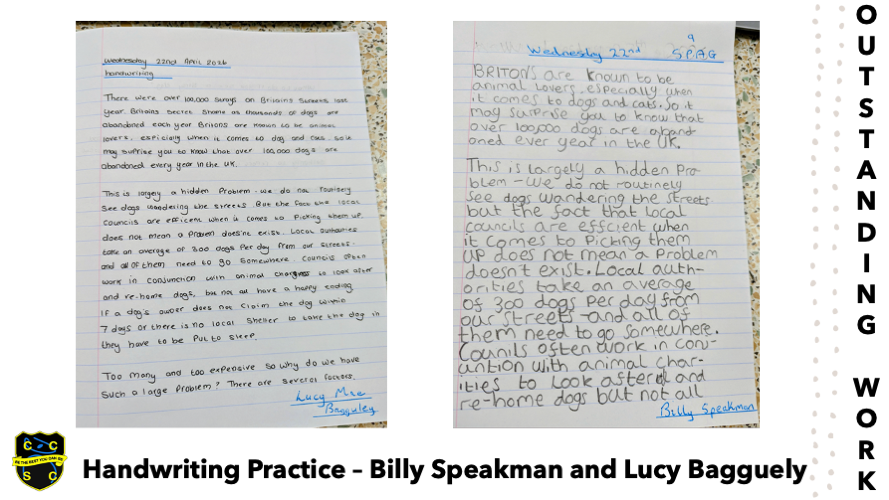 Wednesday 22nd April 2026
handwriting
There were over 100,000 strays on Britains Streets last
year. Britains Secret Shame as thousands of dogs are
abandoned each year Britons are known to be animal
lovers, especially when it comes to dog and cats. So it
may suprise you to know that over 100,000 dogs are
abandoned every year in the UK.
This is largely a hidden Problem - we do not routinely
see dogs wandering the streets. But the fact the local
Councils are efficent when it comes to Picking them up
does not mean a Problem doesn't exist. Local authorities
take an average of 300 dogs Per day from our streets.
and all of them need to go Somewhere. Councils often
work in conjunction with animal to look after
and re-home dogs, but not all have a happy ending
If a dog's owner does not claim the dog within
7 days or there is no local Shelter to take the dog in
they have to be Put to sleep.
Too many and too expensive so why do we have
Such a large Problem? There are several factors.
Lucy Mae
Bagguley
Wednesday 22nd
S.P.A.G
BRITONS are known to be
animal lovers, especially when
it comes to dogs and cats. So it
may surprise you to know that
over 100,000 dogs are aband-
oned ever year in the UK.
This is largely a hidden Pro
blem - we do not routinely
see dogs wandering the streets.
but the fact that local
councils are effcient when
it comes to Picking them
UP does not mean a Problem
doesn't exist. Local auth-
orities take an average
of 300 dogs Per day from
our streets - and all of
them need to go somewhere.
Counils often work in conj-
untion with animal char-
ities to look and
re-home dogs but not all
Billy Speakman
OUTSTANDING WORK
C C
BE THE BEST YOU CAN BE
S C
Handwriting Practice – Billy Speakman and Lucy Bagguely